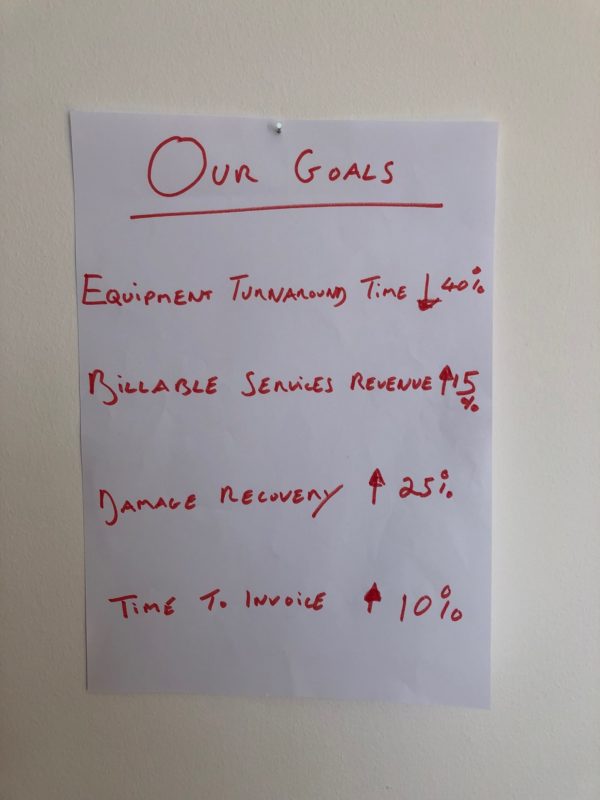 OUR GOALS
EQUIPMENT TURNAROUND TIME ↓ 40%
BILLABLE SERVICES REVENUE ↑ 15%
DAMAGE RECOVERY ↑ 25%
TIME TO INVOICE ↑ 10%